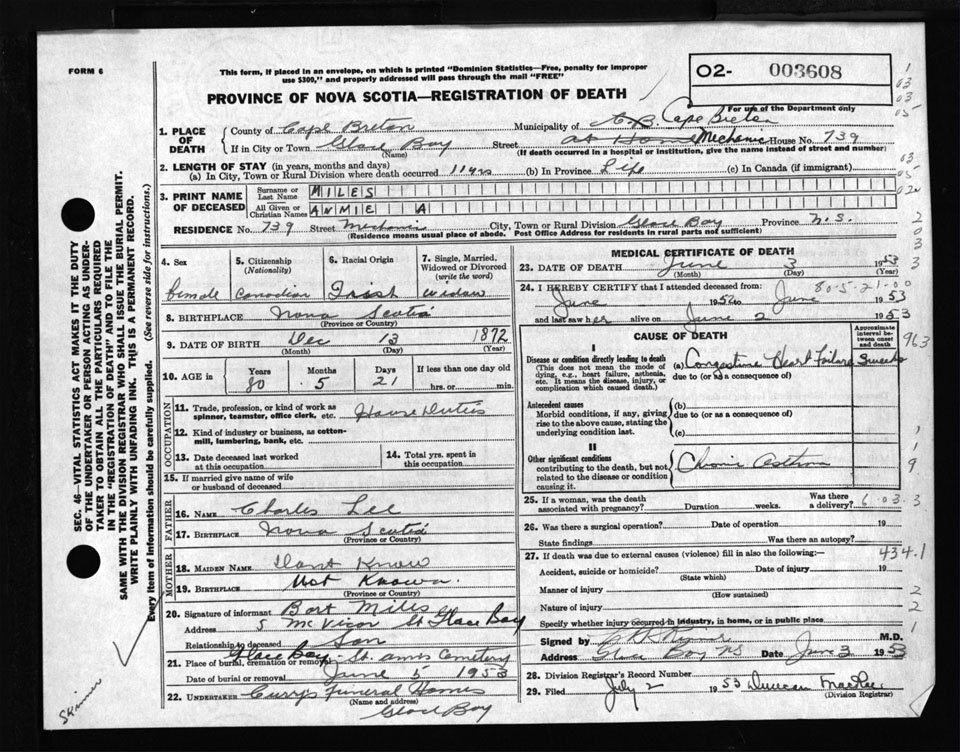 FORM 6
This form, if placed in an envelope, on which is printed "Dominion Statistics—Free, penalty for improper
use $300," and properly addressed will pass through the mail "FREE"
O2- 003608
For use of the Department only
PROVINCE OF NOVA SCOTIA—REGISTRATION OF DEATH
1. PLACE OF DEATH
County of Cape Breton Municipality of C.B. Cape Breton
If in City or Town Glace Bay (Name) Street Mechanic House No. 739
(If death occurred in a hospital or institution, give the name instead of street and number)
2. LENGTH OF STAY (in years, months and days)
(a) In City, Town or Rural Division where death occurred 11 yrs (b) In Province Life (c) In Canada (if immigrant)
3. PRINT NAME OF DECEASED
Surname or Last Name MILES
All Given or Christian Names ANMIE A
RESIDENCE No. 739 Street Mechanic City, Town or Rural Division Glace Bay Province N.S.
(Residence means usual place of abode. Post Office Address for residents in rural parts not sufficient)
4. Sex
Female
5. Citizenship (Nationality)
Canadian
6. Racial Origin
Irish
7. Single, Married, Widowed or Divorced (write the word)
widow
8. BIRTHPLACE Nova Scotia
(Province or Country)
9. DATE OF BIRTH Dec 13 1872
(Month) (Day) (Year)
10. AGE in Years Months Days If less than one day old
80 5 21 hrs. or min.
OCCUPATION
11. Trade, profession, or kind of work as spinner, teamster, office clerk, etc. House Duties
12. Kind of industry or business, as cotton-mill, lumbering, bank, etc.
13. Date deceased last worked at this occupation
14. Total yrs. spent in this occupation
15. If married give name of wife or husband of deceased
FATHER
16. NAME Charles Lee
17. BIRTHPLACE Nova Scotia
(Province or Country)
MOTHER
18. MAIDEN NAME Dont Know
19. BIRTHPLACE Not Known.
(Province or Country)
20. Signature of informant Bart Miles
Address 5 McVicar St Glace Bay
Relationship to deceased Son
21. Place of burial, cremation or removal Glace Bay - St. Anns Cemetery
Date of burial or removal June 5 1953
22. UNDERTAKER Curry's Funeral Homes
(Name and address)
Glace Bay
MEDICAL CERTIFICATE OF DEATH
23. DATE OF DEATH June 3 1953
(Month) (Day) (Year)
80.5.21.00
24. I HEREBY CERTIFY that I attended deceased from:
June 1952 to June 1953
and last saw her alive on June 2 1953
CAUSE OF DEATH
Approximate interval between onset and death
I
Disease or condition directly leading to death
(This does not mean the mode of dying, e.g., heart failure, asthenia, etc. It means the disease, injury, or complication which caused death.)
(a) Congestive Heart Failure 3 weeks
due to (or as a consequence of)
Antecedent causes
Morbid conditions, if any, giving rise to the above cause, stating the underlying condition last.
(b)
due to (or as a consequence of)
(c)
II
Other significant conditions
contributing to the death, but not related to the disease or condition causing it.
Chronic Asthma
25. If a woman, was the death associated with pregnancy? Duration weeks. Was there a delivery?
6.03.3
26. Was there a surgical operation? Date of operation 19
State findings Was there an autopsy?
27. If death was due to external causes (violence) fill in also the following:—
434.1
Accident, suicide or homicide? (State which) Date of injury 19
Manner of injury
(How sustained)
Nature of injury
Specify whether injury occurred in industry, in home, or in public place
Signed by M.D.
Address Glace Bay NS Date June 3 1953
28. Division Registrar's Record Number
29. Filed July 2 1953 Duncan MacRae
(Division Registrar)
SEC. 46—VITAL STATISTICS ACT MAKES IT THE DUTY
OF THE UNDERTAKER OR PERSON ACTING AS UNDERTAKER TO OBTAIN ALL THE PARTICULARS REQUIRED
IN THE "REGISTRATION OF DEATH" AND TO FILE THE
SAME WITH THE DIVISION REGISTRAR WHO SHALL ISSUE THE BURIAL PERMIT.
WRITE PLAINLY WITH UNFADING INK. THIS IS A PERMANENT RECORD.
Every item of information should be carefully supplied. (See reverse side for instructions.)
Skinner
963